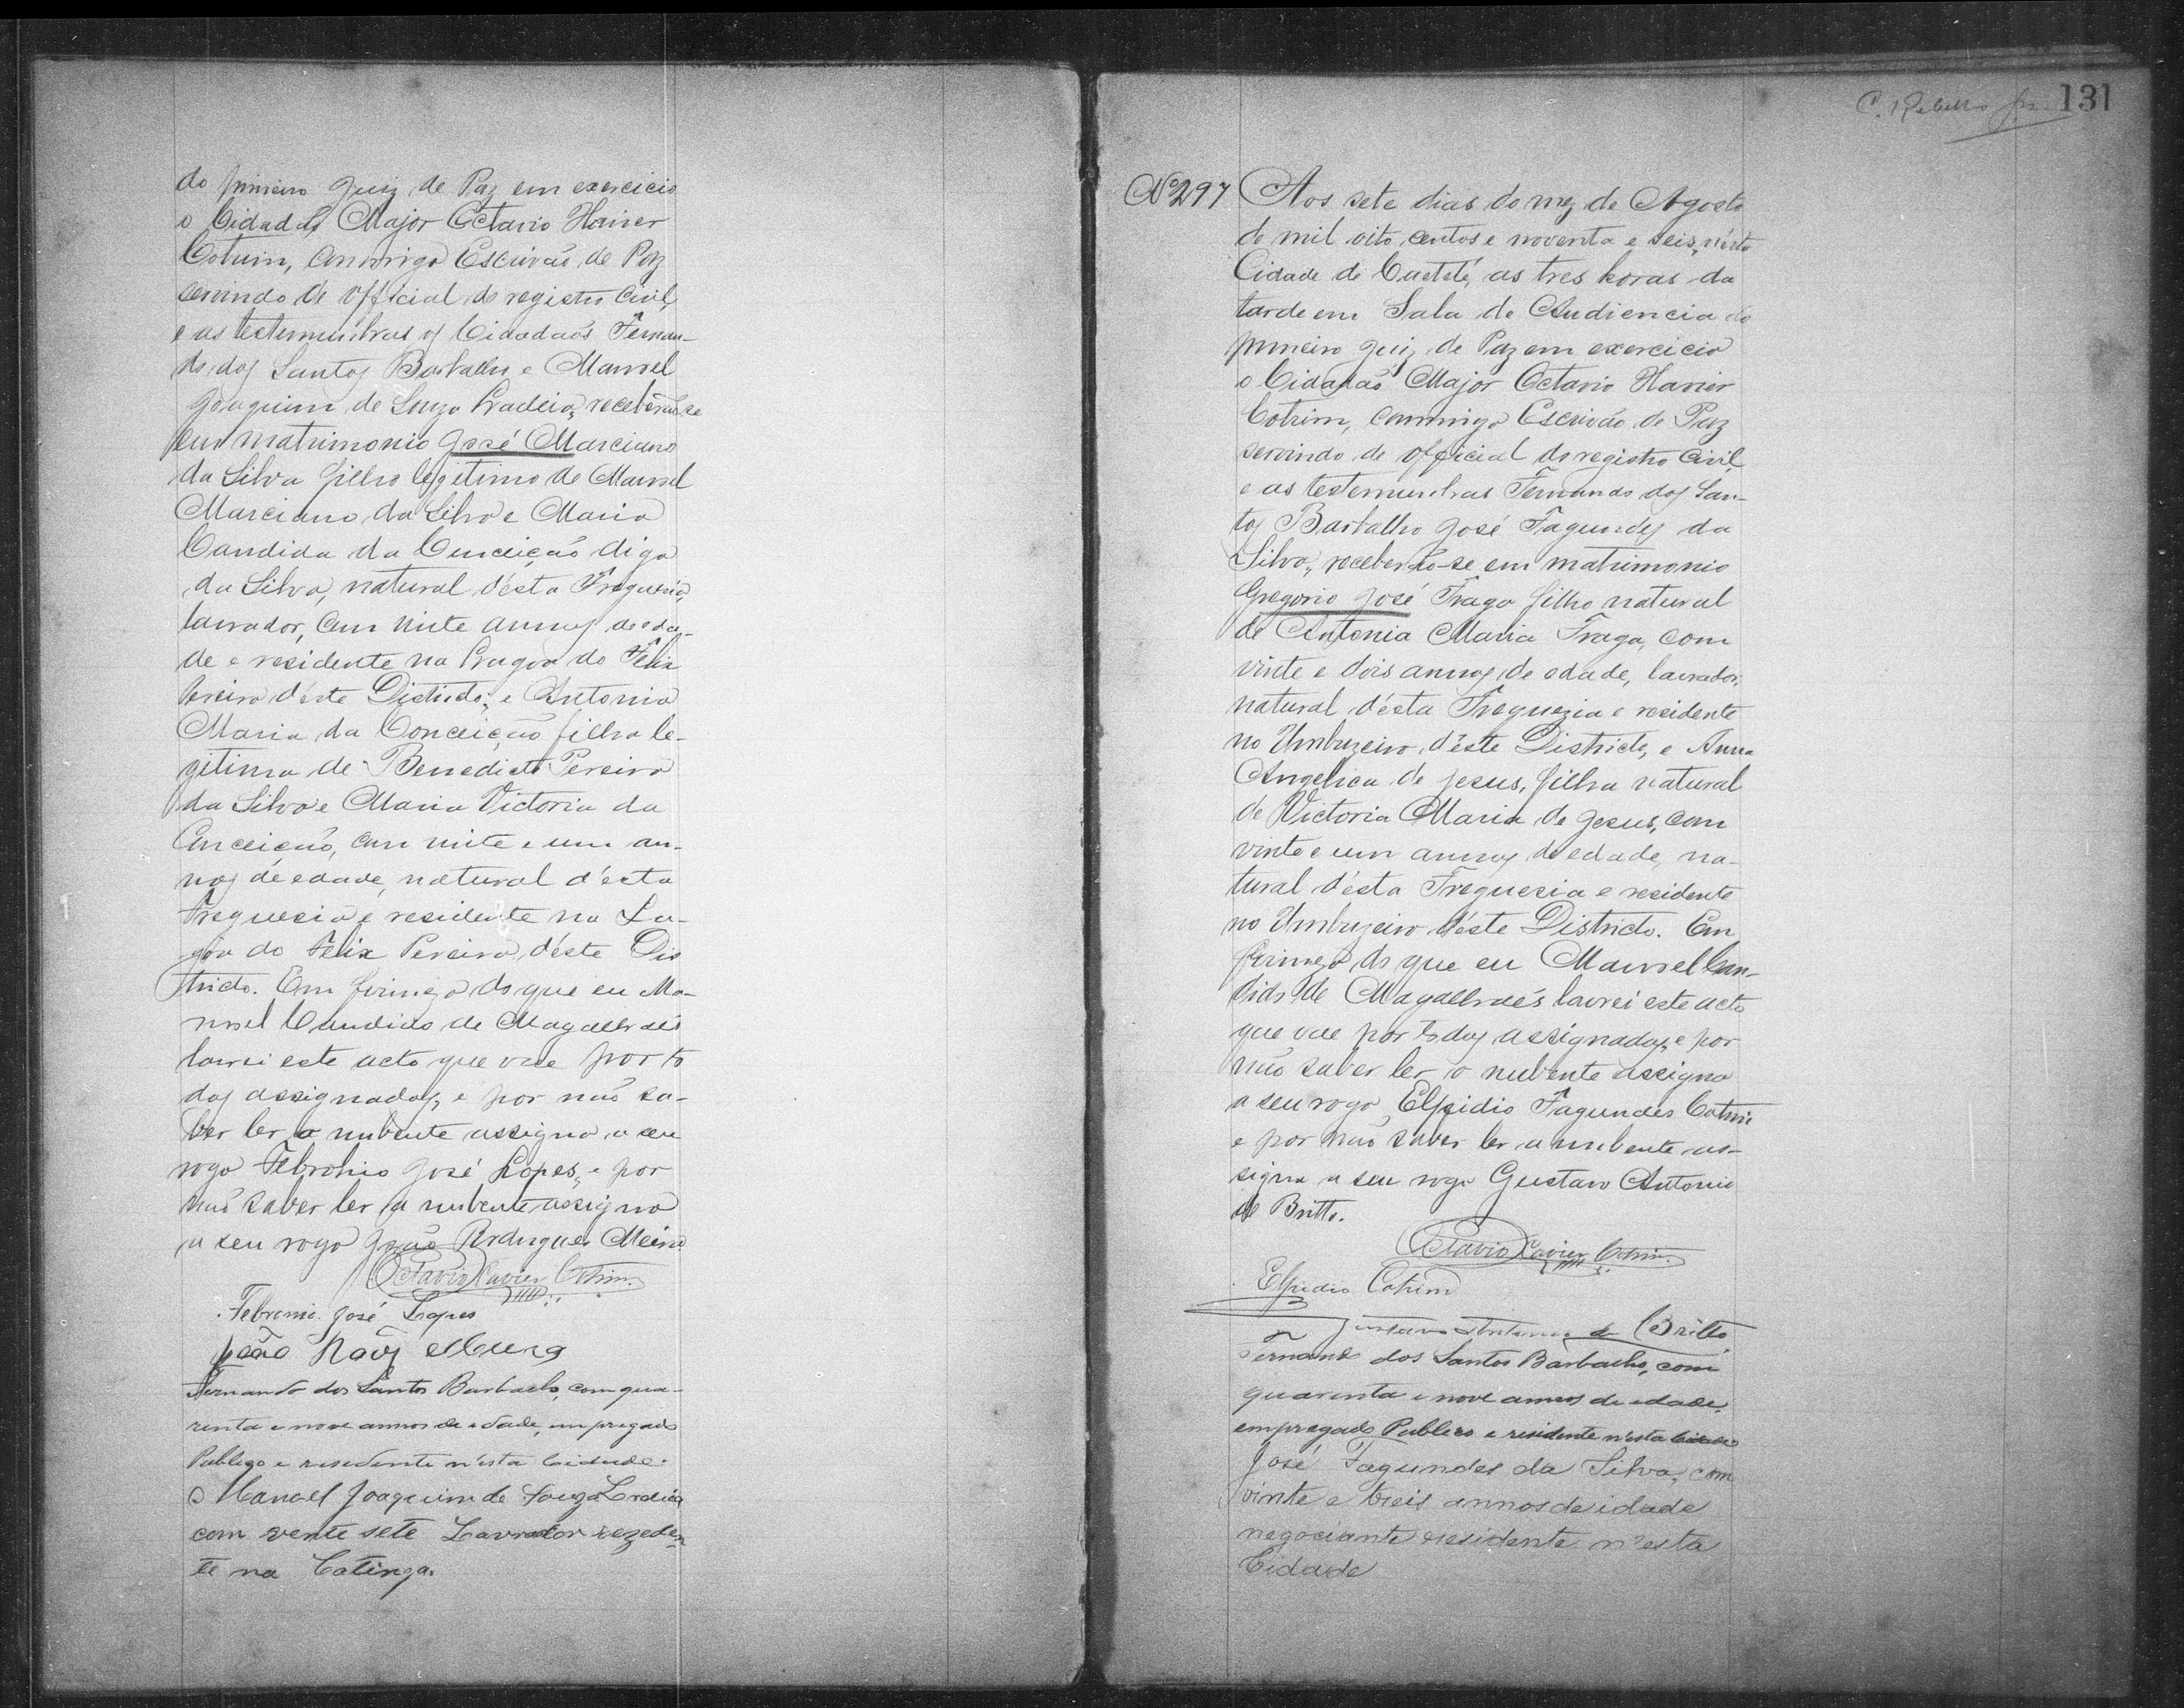 do primeiro Juiz de Paz em exercicio
o Cidadaõ Major Octavio Xavier
Cotrim, Commigo Escrivaõ de Paz
servindo de official do registro Civil,
e as testemunhas os Cidadaõs Fernan-
do dos Santos Barbalho e Manoel
Joaquim de Souza Ladeia, receberaõ-se
em matrimonio José Marciano
da Silva filho legitimo de Manoel
Marciano da Silva e Maria
Candida da Conceiçaõ digo
da Silva, natural d'ésta Freguesia,
lavrador, Com vinte annos de eda-
de e residente na Lagoa do Felix
Pereira d'éste Districto; e Antonia
Maria da Conceiçaõ filha le-
gitima de Benedicto Pereira
da Silva e Maria Victoria da
Conceiçaõ, com vinte e um an-
nos de edade, natural d'ésta
Freguesia e residente na La-
goa do Felix Pereira, d'éste Dis
tricto. Em firmeza do que eu Ma-
noel Candido de Magalhaẽs
lavrei este acto que vae por to
dos assignados, e por naõ sa-
ber ler o nubente assigna a seu
rogo Febronio José Lopes, e por
naõ saber ler a nubente assigna
a seu rogo João Rodrigues Meira
Octavio Xavier Cotrim.
Febronio José Lopes
João Roiz Meira
Fernando dos Santos Barbalho, com qua-
renta e nove annos de edade, empregado
Publego e resedente n'ésta Cidade.
Manoel Joaquim de Souza Ladeia
com vente sete Lavrador rezeden
te na Catinga.
C. Rebello
131
Nº 297
Aos sete dias do mez de Agosto
de mil oito centos e noventa e seis, n'ésta
Cidade de Caeteté, as tres horas da
tarde em Sala de Audiencia do
primeiro Juiz de Paz em exercicio
o Cidadaõ Major Octavio Xavier
Cotrim, Commigo Escrivaõ de Paz
servindo de official do registro Civil,
e as testemunhas Fernando dos San-
tos Barbalho José Fagundes da
Silva, receberaõ-se em matrimonio
Gregorio José Fraga filho natural
de Antonia Maria Fraga, com
vinte e dois annos de edade, lavrador,
natural d'ésta Freguezia e residente
no Umbuzeiro, d'éste Districto, e Anna
Angelica de Jesus, filha natural
de Victoria Maria de Jesus, com
vinte e um annos de edade, na-
tural d'ésta Freguesia e residente
no Umbuzeiro d'éste Districto. Em
firmeza do que eu Manoel Can-
dido de Magalhaẽs lavrei este acto
que vae por todos assignados, e por
naõ saber ler o nubente assigna
a seu rogo Elpidio Fagundes Cotrim
e por naõ saber ler a nubente as-
signa a seu rogo Gustavo Antonio
de Britto.
Octavio Xavier Cotrim.
Elpidio Cotrim
Gustavo Antonio de Britto
Fernando dos Santos Barbalho, com
quarenta e nove annos de edade,
empregado Publeco e residente n'ésta Cidade
José Fagundes da Silva, com
vinte e treis annos de idade
negociante residente n'esta
Cidade